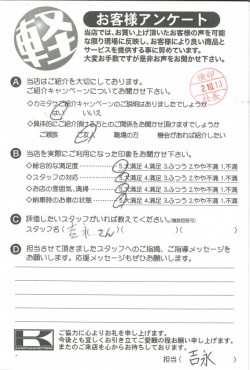 軽
お客様アンケート
当店では、お買い上げ頂いたお客様の声を可能
な限り現場に反映し、お客様により良い商品と
サービスを提供する事に努めています。
大変お手数ですが是非お声をお聞かせ下さい。
検印
2.10.13
Ⓐ 当店はご紹介を大切にしております。
ご紹介キャンペーンについてお聞かせ下さい。
◇カミタケご紹介キャンペーンのご説明はありましたでしょうか
はい いいえ
◇具体的にご紹介頂ける方とのご関係をお聞かせ頂けますでしょうか
ご親族 ご友人 職場の方 機会があれば紹介したい
Ⓑ 当店を実際にご利用になった印象をお聞かせ下さい。
◇総合的な満足度 5.大満足 4.満足 3.ふつう 2.やや不満 1.不満
◇スタッフの対応 5.大満足 4.満足 3.ふつう 2.やや不満 1.不満
◇お店の雰囲気、清掃 5.大満足 4.満足 3.ふつう 2.やや不満 1.不満
◇納車時のお車の状態 5.大満足 4.満足 3.ふつう 2.やや不満 1.不満
Ⓒ 評価したいスタッフがいれば教えてください。(複数回答可)
スタッフ名( 吉永さん )( )( )
Ⓓ 担当させて頂きましたスタッフへのご指摘、ご指導メッセージを
お願いします。応援メッセージもぜひお願いします。
K
ご協力に心よりお礼を申し上げます。
今後とも宜しくお引き立てご愛顧の程お願い申し上げます。
またのご来店を心からお待ちしております。
担当( 吉永 )